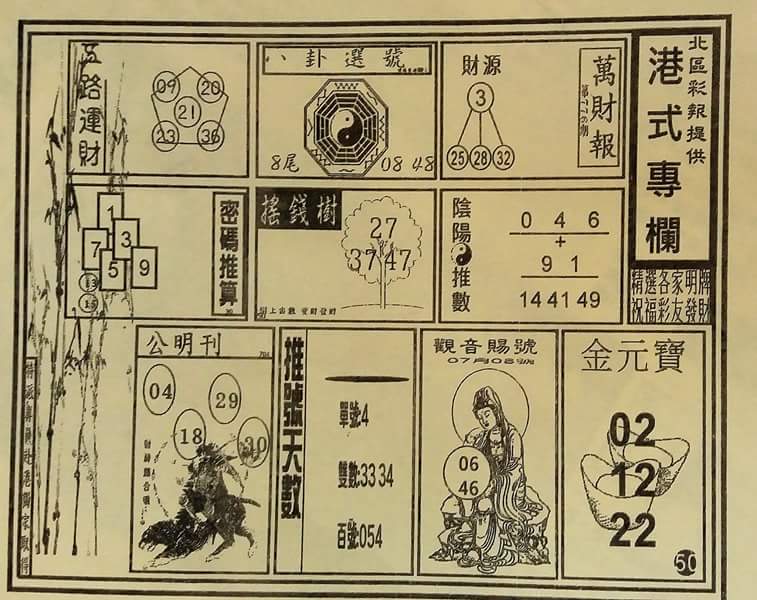 北區彩報提供
港式專欄
精選各家明牌
祝福彩友發財
萬財報
財源
3
25 28 32
八卦選號
8尾
08 48
五路運財
09 20
21
23 36
陰陽推數
0 4 6
+
9 1
14 41 49
搖錢樹
27
37 47
密碼推算
1
7 3
5 9
13
15
金元寶
02
12
22
50
觀音賜號
07月08號
06
46
推號天數
單號:4
雙數:33 34
百號:054
公明刊
04
29
18
30